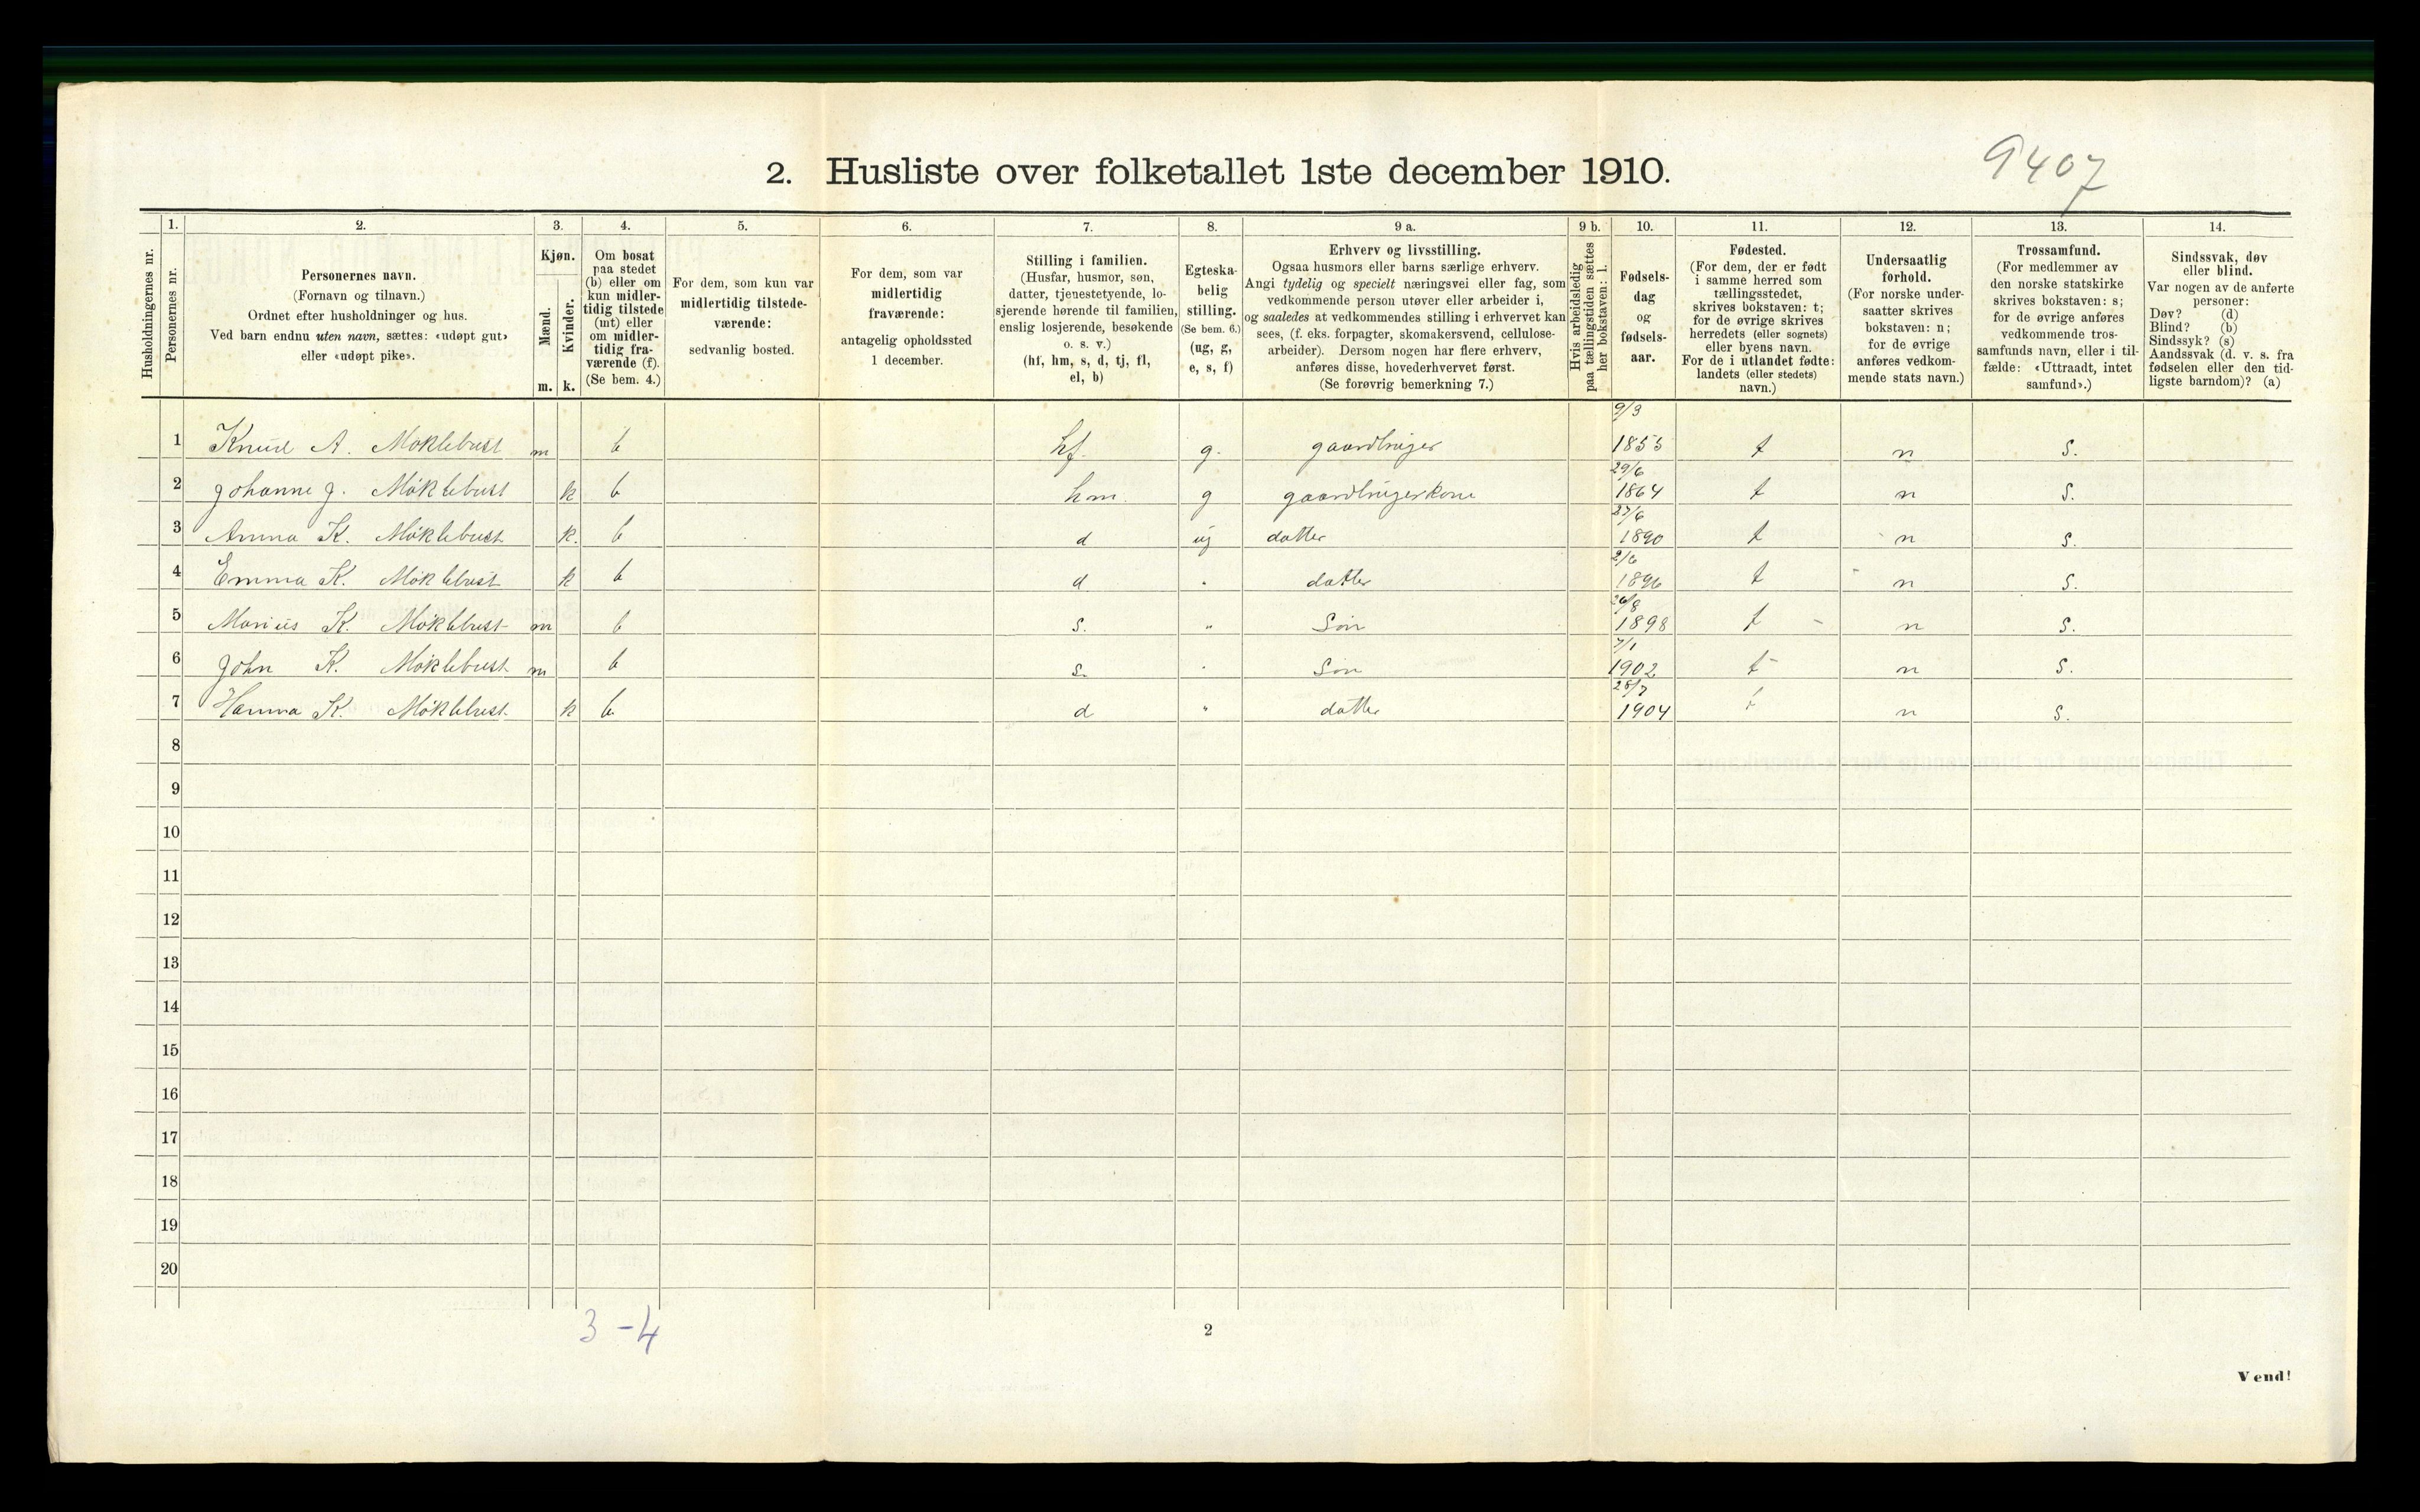 9407
2. Husliste over folketallet 1ste december 1910.
1. 2. 3. 4. 5. 6. 7. 8. 9 a. 9 b. 10. 11. 12. 13. 14.
Husholdningernes nr.
Personernes nr.
Personernes navn.
(Fornavn og tilnavn.)
Ordnet efter husholdninger og hus.
Ved barn endnu uten navn, sættes: «udøpt gut»
eller «udøpt pike».
Kjøn.
Mænd.
Kvinder.
m. k.
Om bosat
paa stedet
(b) eller om
kun midler-
tidig tilstede
(mt) eller
om midler-
tidig fra-
værende (f).
(Se bem. 4.)
For dem, som kun var
midlertidig tilstede-
værende:
sedvanlig bosted.
For dem, som var
midlertidig
fraværende:
antagelig opholdssted
1 december.
Stilling i familien.
(Husfar, husmor, søn,
datter, tjenestetyende, lo-
sjerende hørende til familien,
enslig losjerende, besøkende
o. s. v.)
(hf, hm, s, d, tj, fl,
el, b)
Egteska-
belig
stilling.
(Se bem. 6.)
(ug, g,
e, s, f)
Erhverv og livsstilling.
Ogsaa husmors eller barns særlige erhverv.
Angi tydelig og specielt næringsvei eller fag, som
vedkommende person utøver eller arbeider i,
og saaledes at vedkommendes stilling i erhvervet kan
sees, (f. eks. forpagter, skomakersvend, cellulose-
arbeider). Dersom nogen har flere erhverv,
anføres disse, hovederhvervet først.
(Se forøvrig bemerkning 7.)
Hvis arbeidsledig
paa tællingstiden sættes
her bokstaven: l.
Fødsels-
dag
og
fødsels-
aar.
Fødested.
(For dem, der er født
i samme herred som
tællingsstedet,
skrives bokstaven: t;
for de øvrige skrives
herredets (eller sognets)
eller byens navn.
For de i utlandet fødte:
landets (eller stedets)
navn.)
Undersaatlig
forhold.
(For norske under-
saatter skrives
bokstaven: n;
for de øvrige
anføres vedkom-
mende stats navn.)
Trossamfund.
(For medlemmer av
den norske statskirke
skrives bokstaven: s;
for de øvrige anføres
vedkommende tros-
samfunds navn, eller i til-
fælde: «Uttraadt, intet
samfund».)
Sindssvak, døv
eller blind.
Var nogen av de anførte
personer:
Døv? (d)
Blind? (b)
Sindssyk? (s)
Aandssvak (d. v. s. fra
fødselen eller den tid-
ligste barndom)? (a)
1 Knud A. Møklebust m b hf. g. gaardbruger 9/3 1855 t n s.
2 Johanne J. Møklebust k b hm g gaardbrugerkone 29/6 1864 t n s.
3 Anna K. Møklebust k. b d ug datter 27/6 1890 t n s.
4 Emma K. Møklebust k b d " datter 2/6 1896 t n s.
5 Marius K. Møklebust m b s. " Søn 26/8 1898 t n s.
6 John K. Møklebust m b s. " Søn 7/1 1902 t n s.
7 Hanna K. Møklebust k b d " datter 28/7 1904 t n s.
8
9
10
11
12
13
14
15
16
17
18
19
20
3-4
2
Vend!